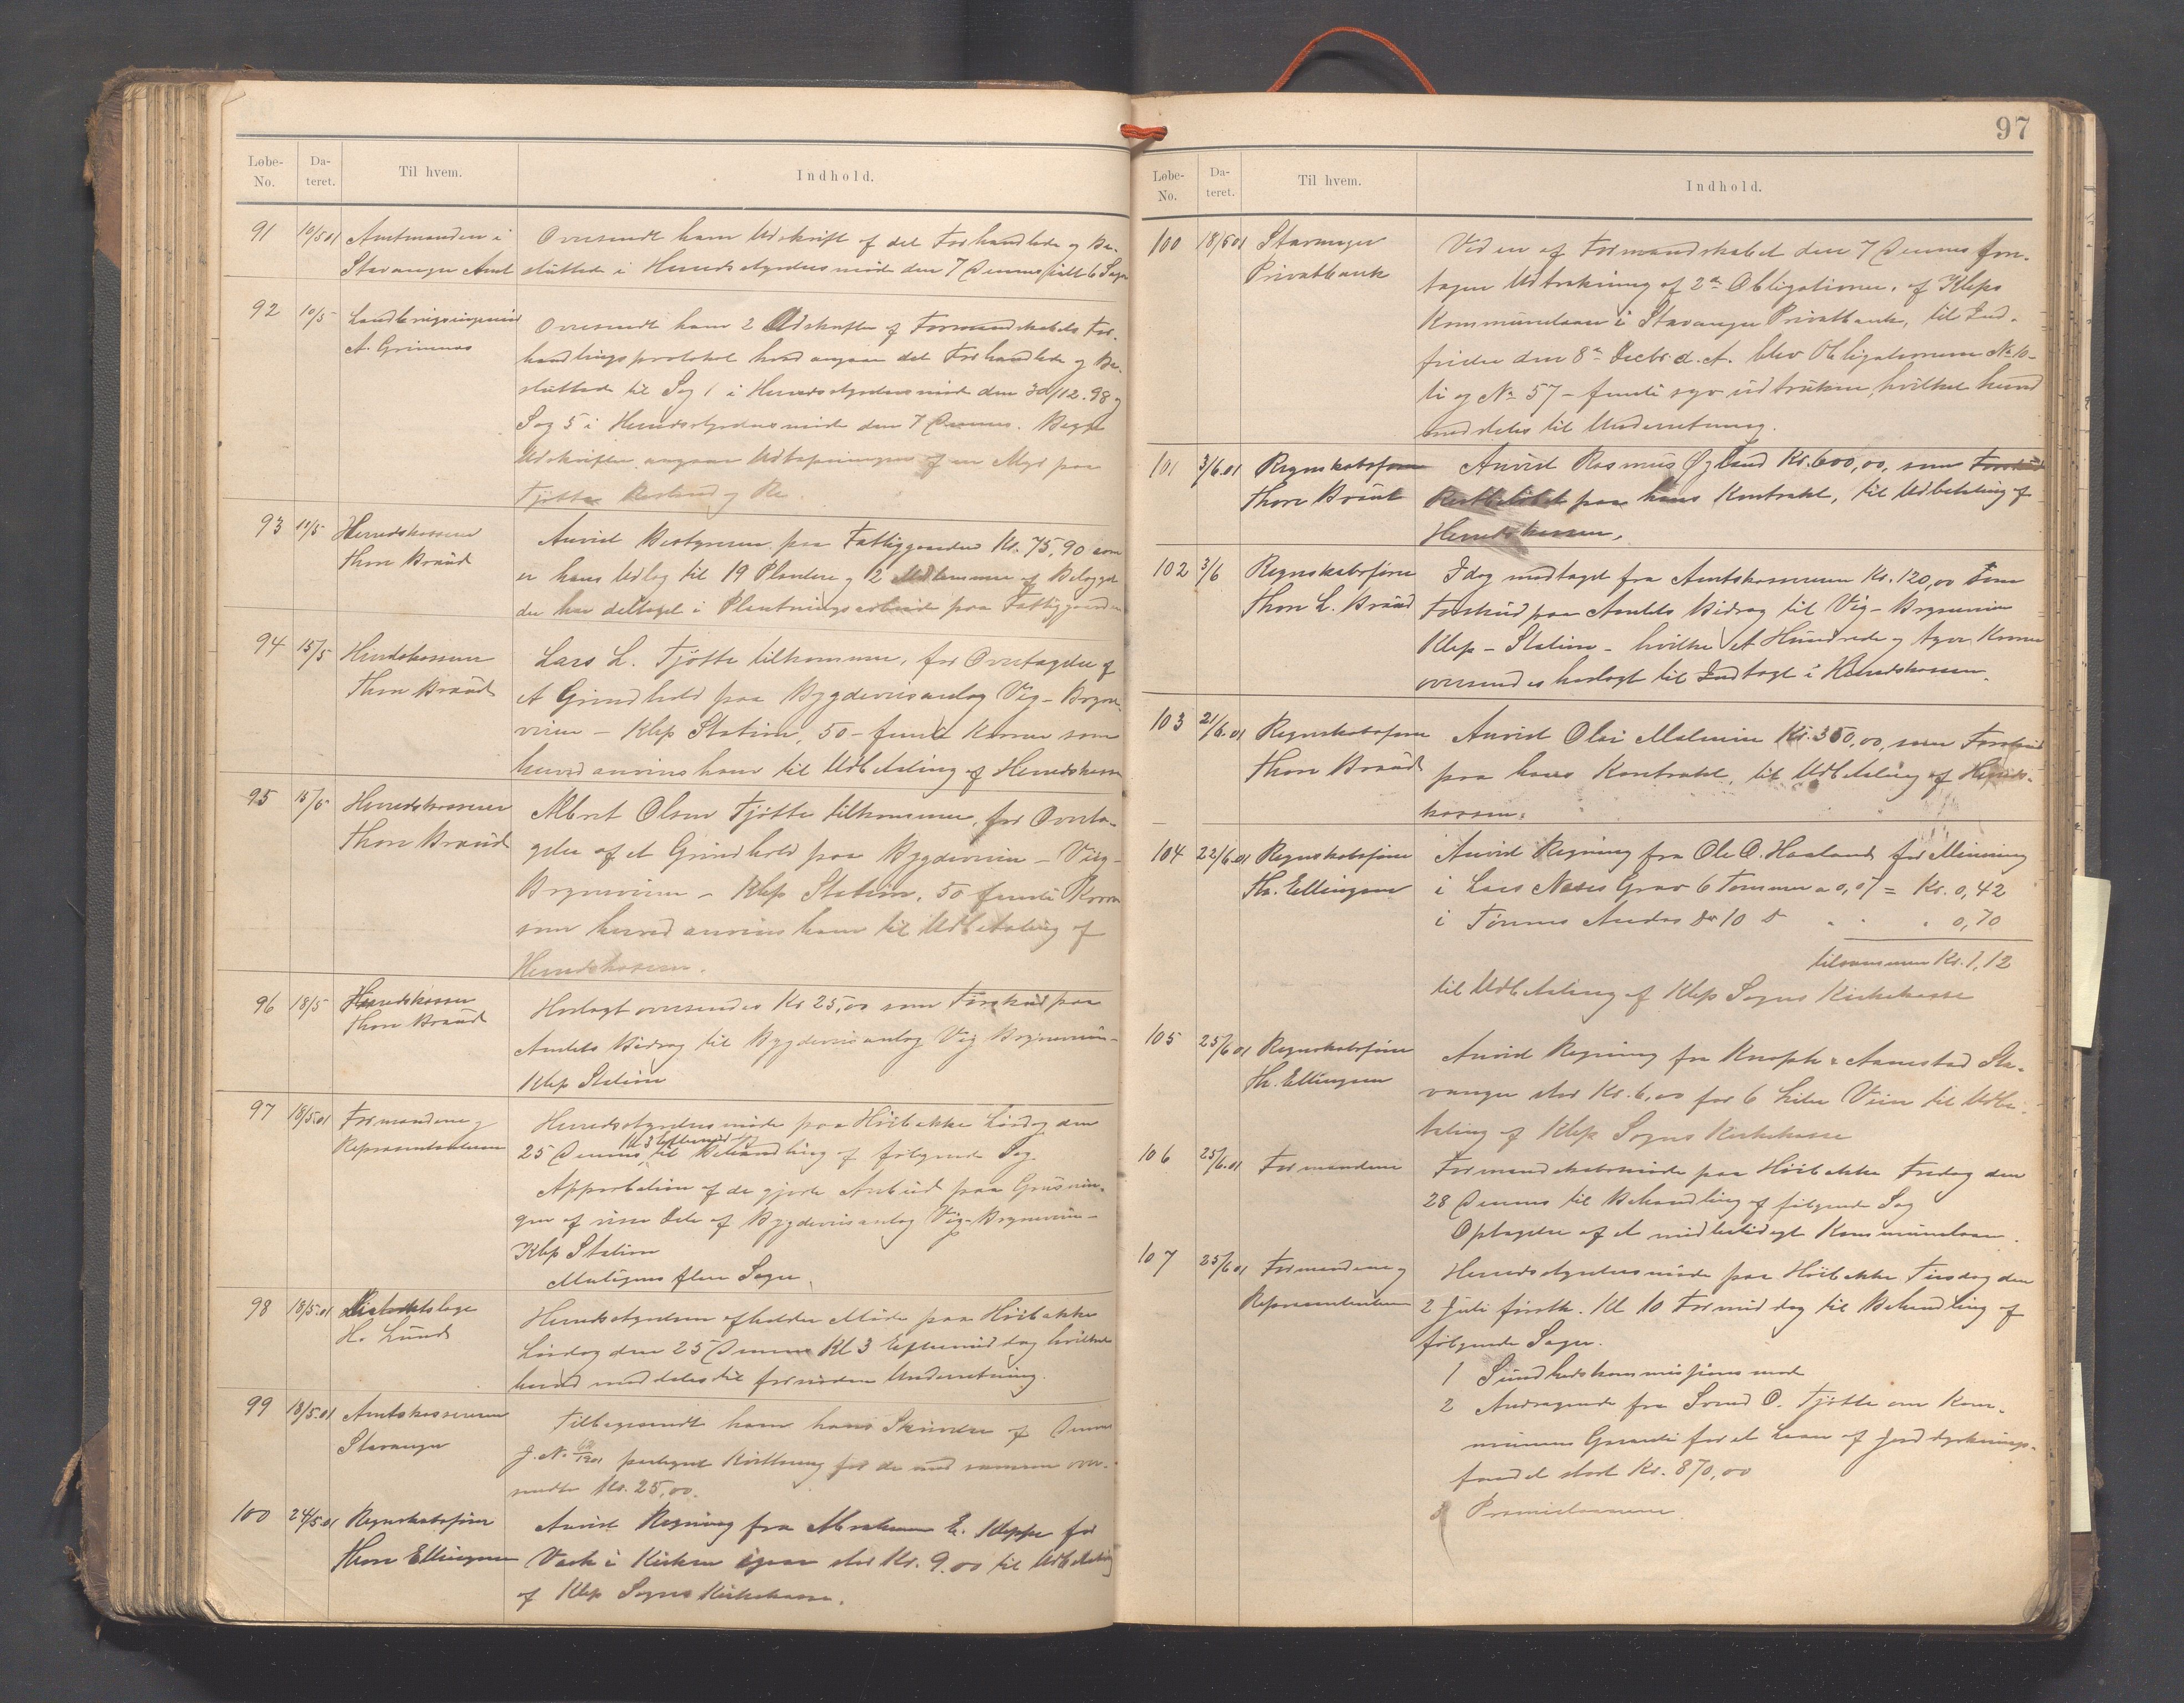 Løbe-No. Da-teret. Til hvem. Indhold.
91 10/5 01 Amtmanden i Oversendt ham Udskrift af det Forhandlede og Be-
Stavanger Amt sluttede i Herredsstyrelsesmøde den 7 Dennes ialt 6 Sager
92 10/5 A. Grimnæs Oversendt ham 2 Udskrifter af Formandskabets For-
handlingsprotokol hvad angaar det Forhandlede og Be-
sluttede til Sag 1 i Herredsstyrelsesmøde den 30/12.98 og
Sag 5 i Herredsstyrelsesmøde den 7 Dennes. Begge
Udskrifter angaar Udtapningen af en Myr paa
Tjøtta og Re.
93 11/5 Herredskasserer Anvist Bestyreren paa Fattiggaarden Kr. 75,90 som
Thore Braud er hans Udlag til 19 Plantere og 2 af
der har deltaget i Plantningsarbeide paa Fattiggaarden
94 15/5 Herredskasserer Lars L. Tjøtta tilkommer, for Overtagelse af
Thore Braud et Grindhold paa Bygdeveisanlæg Vig - Bryne-
veien - Klep Station, 50 - femti Kroner som
herved anvises ham til Udbetaling af Herredskassen
95 15/5 Herredskasserer Albret Olsen Tjøtta tilkommer, for Overta-
Thore Braud gelse af et Grindhold paa Bygdeveien - Vig -
Bryneveien - Klep Station, 50 femti Kroner
som herved anvises ham til Udbetaling af
Herredskassen.
96 18/5 Herredskasserer Hoslagt oversendes Kr 25,00 som Forskud paa
Thore Braud Amtets Bidrag til Bygdeveisanlæg Vig Bryneveien -
Klep Station
97 18/5.01 Formændene og Herredsstyrelsesmøde paa Høibakke Lørdag den
Repræsentanterne 25 Dennes Kl 3 Eftermiddag til Behandling af følgende Sag.
Approbation af de gjorte Anbud paa Grusnin-
gen af visse Dele af Bygdeveisanlæg Vig - Bryneveien -
Klep Station
Muligens flere Sager.
98 18/5.01 Distriktslæge Herredsstyrelsen afholder Møde paa Høibakke
H. Lund Lørdag den 25 Dennes Kl 3 Eftermiddag hvilket
herved meddeles til fornøden Underretning.
99 18/5.01 Amtskassereren Tilbagesendt ham hans Skrivelse af Dennes
Stavanger J. No. /1901 paategnet Kvittering for de med samme over-
sendte Kr. 25,00.
100 24/5.01 Regnskabsfører Anvist Regning fra Abraham E. Kleppe for
Thore Ellingsen Vask i Kirken stor Kr. 9.00 til Udbetaling
af Klep Sogns Kirkekasse.
97
Løbe-No. Da-teret. Til hvem. Indhold.
100 18/5 01 Stavanger Ved en af Formandskabet den 7 Dennes fore-
Privatbank tagen Udtrækning af 2de Obligationer, af Kleps
Kommunelaan i Stavanger Privatbank, til Ind-
frielse den 8de Decbr. d. A. blev Obligationerne No 10 -
ti og No 57 - femti syv udtrukne, hvilket herved
meddeles til Underretning.
101 3/6.01 Regnskabsfører Anvist Rasmus Øgland Kr. 600,00, som Forskud
Thore Braut Restbeløbet paa hans Kontrakt, til Udbetaling af
Herredskassen.
102 3/6 Regnskabsfører Idag modtaget fra Amtskassereren Kr. 120,00 som
Thore L. Braud Forskud paa Amtets Bidrag til Vig - Bryneveien
Klep - Station - hvilke et Hundrede og tyve Kroner
oversendes hoslagt til Indtægt i Herredskassen.
103 21/6.01 Regnskabsfører Anvist Olai Malmin Kr. 350,00, som Forskud
Thore Braud paa hans Kontrakt, til Udbetaling af Herreds-
kassen.
104 22/6.01 Regnskabsfører Anvist Regning fra Ole O. Haaland for Minning
Th. Ellingsen i Lars Næses Grav 6 Tommer a 0,07 = Kr. 0,42
i Tønnes Andas 10 " " " 0,70
tilsammen Kr. 1,12
til Udbetaling af Klep Sogns Kirkekasse
105 25/6 01 Regnskabsfører Anvist Regning fra Knoph & Aanestad Sta-
Th. Ellingsen vanger stor Kr. 6,00 for 6 Liter Vin til Udbe-
taling af Klep Sogns Kirkekasse
106 25/6.01 Formændene Formandskabsmøde paa Høibakke Fredag den
28 Dennes til Behandling af følgende Sag
Optagelse af et midlertidigt Kommunelaan.
107 25/6 01 Formændene og Herredsstyrelsesmøde paa Høibakke Tirsdag den
Repræsentanterne 2 Juli førstk. Kl 10 Formiddag til Behandling af
følgende Sager.
1 Sundhedskommissionsmøde
2 Andragende fra Svend O. Tjøtta om Kom-
munens Garanti for et Laan af Jorddyrknings-
fondet stort Kr. 870,00
3 Præmielaanene